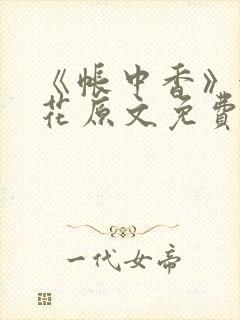 《帐中香》
花原文免費
一代女帝